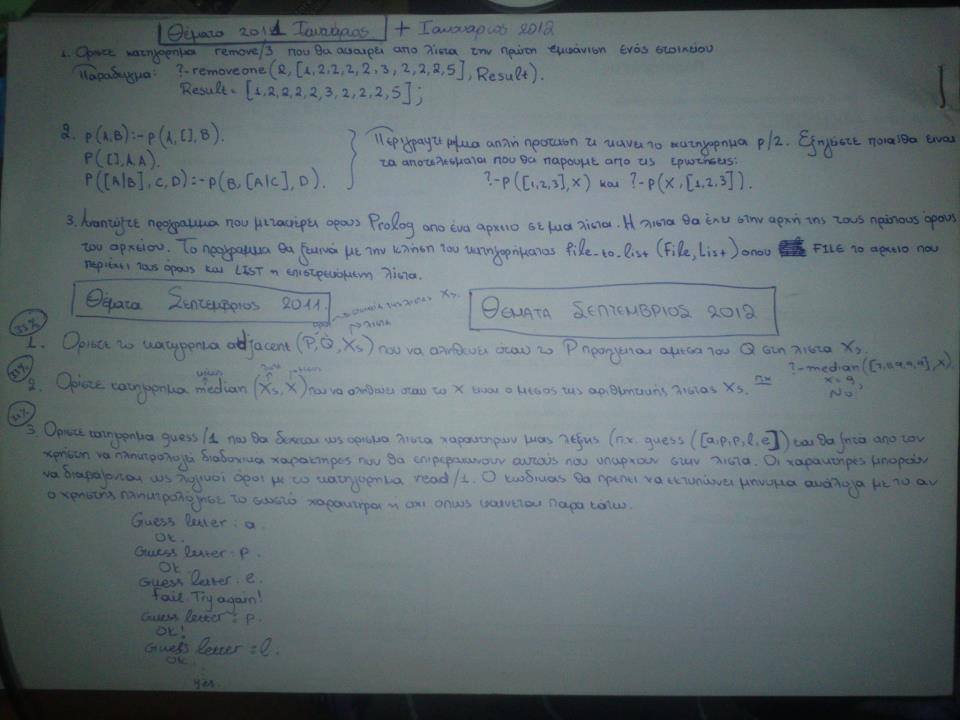 Θέματα 2011 Ιανουάριος + Ιανουάριος 2012
1. Ορίστε κατηγόρημα remove/3 που θα αφαιρεί απο λίστα την πρώτη εμφάνιση ενός στοιχείου
Παράδειγμα: ?-removeone(2,[1,2,2,2,2,3,2,2,2,5],Result).
Result = [1,2,2,2,2,3,2,2,2,5];
2. P(A,B):-P(A,[],B).
P([],A,A).
P([A|B],C,D):-P(B,[A|C],D).
Περιγράψτε με μια απλή πρόταση τι κάνει το κατηγόρημα p/2. Εξηγείστε ποια θα ειναι
τα αποτελέσματα που θα παρουμε απο τις ερωτησεις:
?-P([1,2,3],X) και ?-P(X,[1,2,3]).
3. Αναπτύξτε πρόγραμμα που μεταφέρει ορους Prolog απο ένα αρχειο σε μια λίστα. Η λιστα θα έχει στην αρχή της τους πρώτους όρους
του αρχείου. Το πρόγραμμα θα ξεκινά με την κλήση του κατηγορήματος file-to-list (File,List) οπου FILE το αρχειο που
περιέχει τους όρους και LIST η επιστρεφόμενη λίστα.
Θέματα Σεπτέμβριος 2011
ΘΕΜΑΤΑ ΣΕΠΤΕΜΒΡΙΟΣ 2012
στοιχεία της λίστας Xs.
λίστα
33%
1. Ορίστε το κατηγόρημα adjacent (P,Q,Xs) που να αληθεύει όταν το P προηγείται αμεσα του Q στη λίστα Xs.
2. Ορίστε κατηγόρημα median (Xs,X) που να αληθεύει οταν το X ειναι ο μεσος της αριθμητικής λίστας Xs. πχ
?-median([
X=9
No
3. Οριστε κατηγόρημα guess/1 που θα δέχεται ως ορισμα λίστα χαρακτηρων μιας λέξης (πχ. guess([a,p,p,l,e]) και θα ζητά από τον
χρήστη να πληκτρολογεί διαδοχικα χαρακτήρες που θα επιβεβαιωνουν αυτούς που υπαρχουν στην λιστα. Οι χαρακτήρες μπορουν
να διαβάζονται ως λογικοί όροι με το κατηγόρημα read/1. Ο κωδικας θα πρέπει να εκτυπώνει μηνυμα ανάλογα με το αν
ο χρηστης πληκτρολόγησε το σωστό χαρακτηρα ή όχι οπως φαίνεται παρα κάτω.
Guess letter : a.
Ok.
Guess letter : p.
Ok.
Guess letter : e.
Fail. Try again!
Guess letter : p.
Ok!
Guess letter : l.
Ok.
yes.